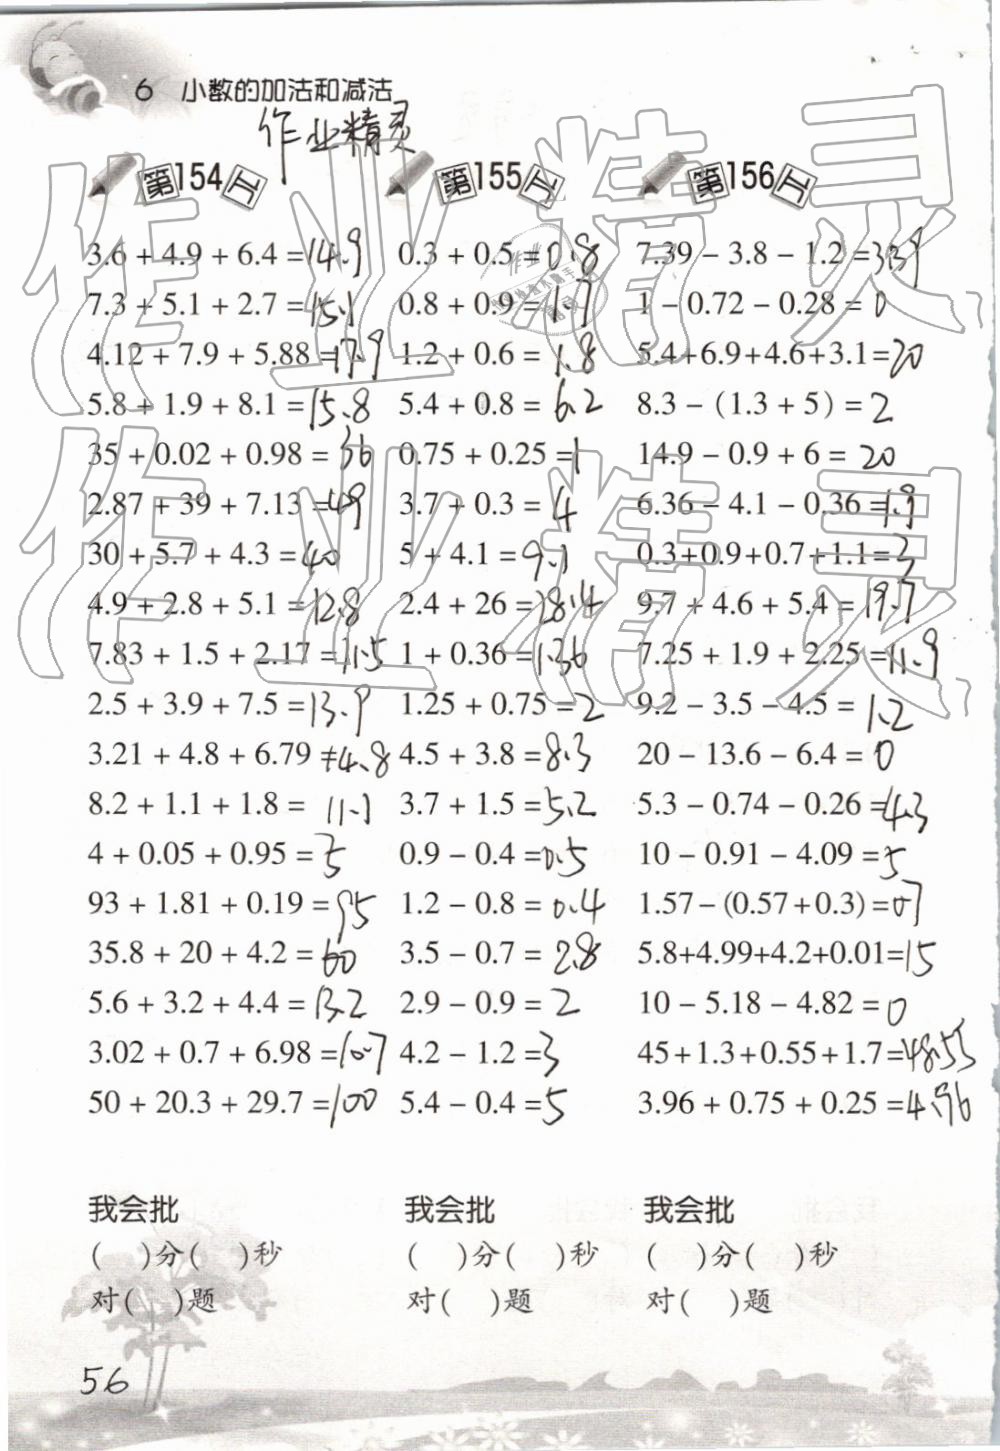 6 小数的加法和减法
作业精灵
第154工
3.6 + 4.9 + 6.4 = 14.9
7.3 + 5.1 + 2.7 = 15.1
4.12 + 7.9 + 5.88 = 17.9
5.8 + 1.9 + 8.1 = 15.8
35 + 0.02 + 0.98 = 36
2.87 + 39 + 7.13 = 49
30 + 5.7 + 4.3 = 40
4.9 + 2.8 + 5.1 = 12.8
7.83 + 1.5 + 2.17 = 11.5
2.5 + 3.9 + 7.5 = 13.9
3.21 + 4.8 + 6.79 = 14.8
8.2 + 1.1 + 1.8 = 11.1
4 + 0.05 + 0.95 = 5
93 + 1.81 + 0.19 = 95
35.8 + 20 + 4.2 = 60
5.6 + 3.2 + 4.4 = 13.2
3.02 + 0.7 + 6.98 = 10.7
50 + 20.3 + 29.7 = 100
我会批
( )分( )秒
对( )题
第155工
0.3 + 0.5 = 0.8
0.8 + 0.9 = 1.7
1.2 + 0.6 = 1.8
5.4 + 0.8 = 6.2
0.75 + 0.25 = 1
3.7 + 0.3 = 4
5 + 4.1 = 9.1
2.4 + 26 = 28.4
1 + 0.36 = 1.36
1.25 + 0.75 = 2
4.5 + 3.8 = 8.3
3.7 + 1.5 = 5.2
0.9 − 0.4 = 0.5
1.2 − 0.8 = 0.4
3.5 − 0.7 = 2.8
2.9 − 0.9 = 2
4.2 − 1.2 = 3
5.4 − 0.4 = 5
我会批
( )分( )秒
对( )题
第156工
7.39 − 3.8 − 1.2 = 3.39
1 − 0.72 − 0.28 = 0
5.4+6.9+4.6+3.1=20
8.3 − (1.3 + 5) = 2
14.9 − 0.9 + 6 = 20
6.36 − 4.1 − 0.36 = 1.9
0.3+0.9+0.7+1.1=3
9.7 + 4.6 + 5.4 = 19.7
7.25 + 1.9 + 2.25 = 11.9
9.2 − 3.5 − 4.5 = 1.2
20 − 13.6 − 6.4 = 0
5.3 − 0.74 − 0.26 = 4.3
10 − 0.91 − 4.09 = 5
1.57−(0.57+0.3)=0.7
5.8+4.99+4.2+0.01=15
10 − 5.18 − 4.82 = 0
45+1.3+0.55+1.7=48.55
3.96 + 0.75 + 0.25 = 4.96
我会批
( )分( )秒
对( )题
56
作业精灵
作业精灵